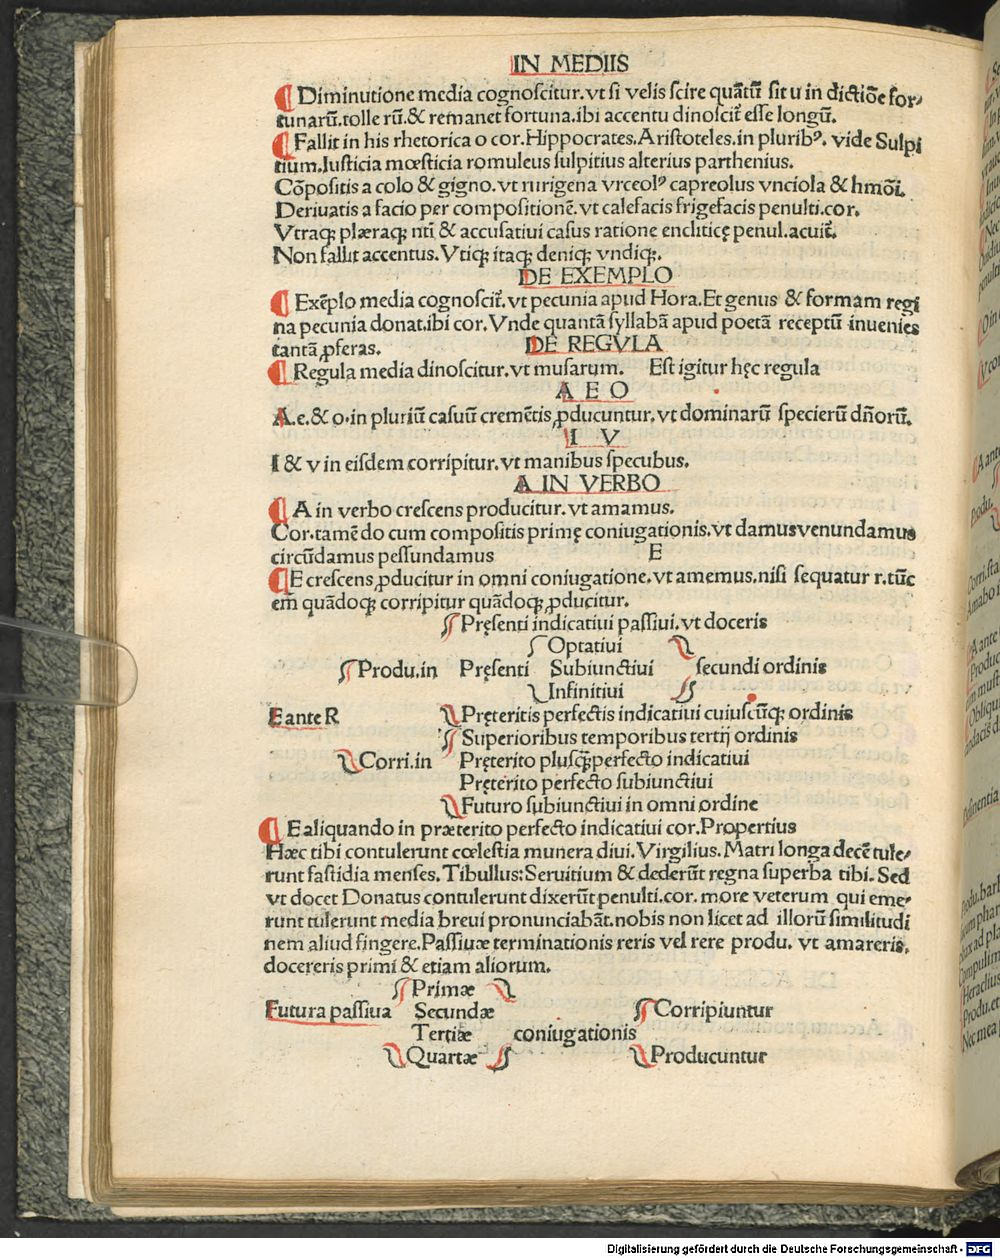 IN MEDIIS
¶ Diminutione media cognoscitur.vt si velis scire quātū sit u in dictiōe for⸗
tunarū.tolle rū.& remanet fortuna.ibi accentu dinoscit᷑ esse longū.
¶ Fallit in his rhetorica o cor.Hippocrates.Aristoteles.in plurib⁹. vide Sulpi
tium.Iusticia mœsticia romuleus sulpitius alterius parthenius.
Cōpositis a colo & gigno.vt rurigena vrceol⁹ capreolus vnciola & hmōi.
Deriuatis a facio per compositionē.vt calefacis frigefacis penulti.cor.
Vtraqꝫ plæraqꝫ ntī & accusatiui casus ratione encliticę penul.acuit᷑.
Non fallit accentus.Vtiqꝫ itaqꝫ deniqꝫ vndiqꝫ.
DE EXEMPLO
¶ Exēplo media cognoscit᷑.vt pecunia apud Hora.Et genus & formam regi
na pecunia donat.ibi cor.Vnde quantā syllabā apud poetā receptū inuenies
tantā ꝓferas.
DE REGVLA
¶ Regula media dinoscitur.vt musarum. Est igitur hęc regula
A E O
A.e.& o.in pluriū casuū cremētis ꝓducuntur.vt dominarū specierū dn̄orū.
I V
I & v in eisdem corripitur.vt manibus specubus.
A IN VERBO
¶ A in verbo crescens producitur.vt amamus.
Cor.tamē do cum compositis primę coniugationis.vt damus venundamus
circūdamus pessundamus E
¶ E crescens ꝓducitur in omni coniugatione.vt amemus.nisi sequatur r.tūc
em quādoqꝫ corripitur quādoqꝫ ꝓducitur.
Pręsenti indicatiui passiui.vt doceris
Optatiui
Produ.in Pręsenti Subiunctiui secundi ordinis
Infinitiui
E ante R Pręteritis perfectis indicatiui cuiuscūqꝫ ordinis
Superioribus temporibus tertij ordinis
Corri.in Pręterito plusꝗ̄perfecto indicatiui
Pręterito perfecto subiunctiui
Futuro subiunctiui in omni ordine
¶ E aliquando in præterito perfecto indicatiui cor.Propertius
Hæc tibi contulerunt cœlestia munera diui.Virgilius.Matri longa decē tule⸗
runt fastidia menses.Tibullus:Seruitium & dederūt regna superba tibi.Sed
vt docet Donatus contulerunt dixerūt penulti.cor.more veterum qui eme⸗
runt tulerunt media breui pronunciabāt.nobis non licet ad illorū similitudi
nem aliud fingere.Passiuæ terminationis reris vel rere produ. vt amareris.
docereris primi & etiam aliorum.
Primæ
Futura passiua Secundæ Corripiuntur
Tertiæ coniugationis
Quartæ Producuntur
Digitalisierung gefördert durch die Deutsche Forschungsgemeinschaft - DFG